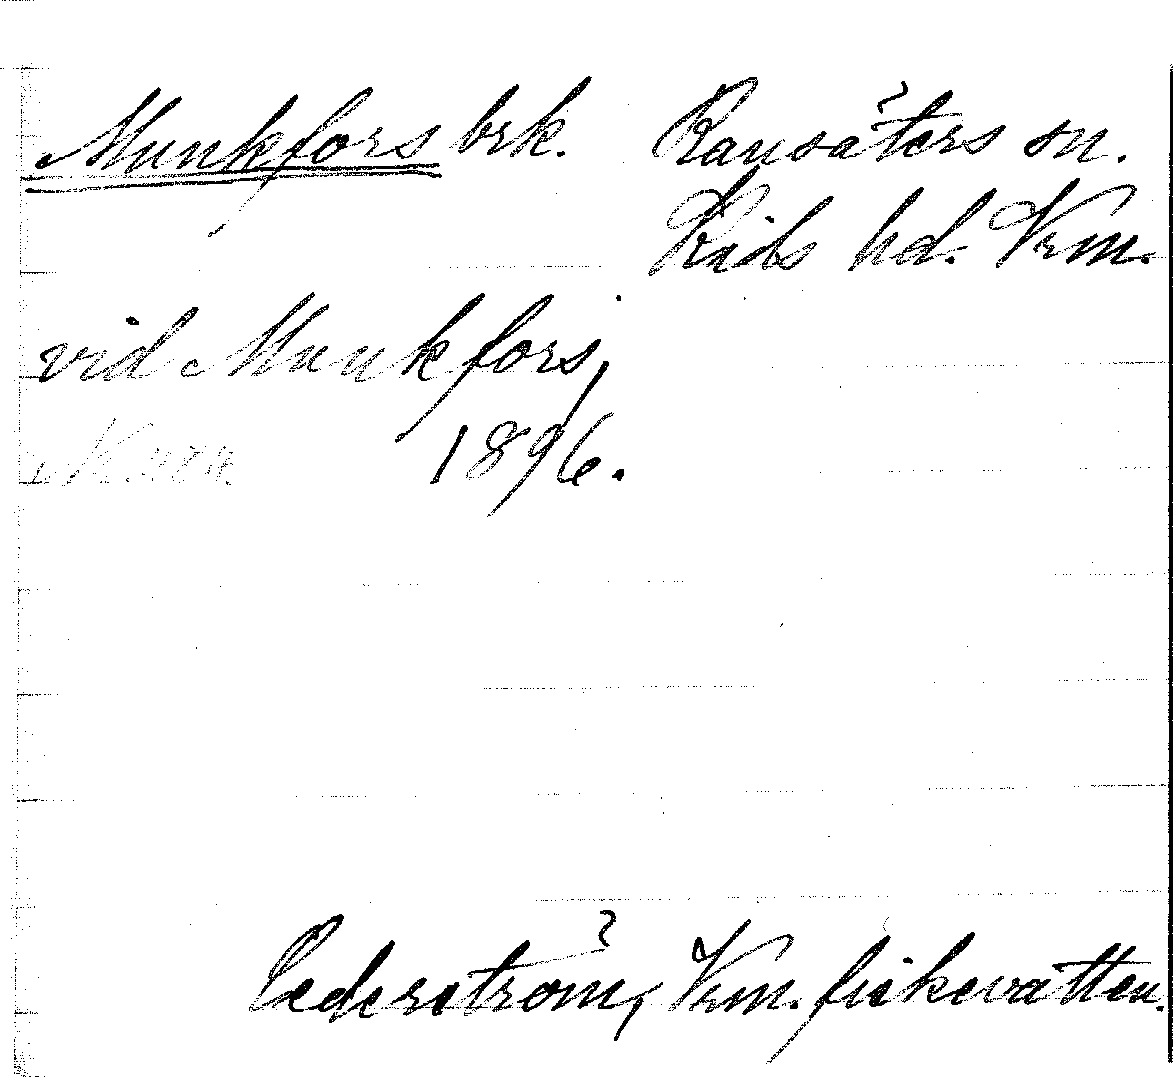 Munkfors brk. Ransäters sn.
Kils hd. Vrm.
vid Munkfors,
1896.
Cederström, Vrm. fiskevatten.